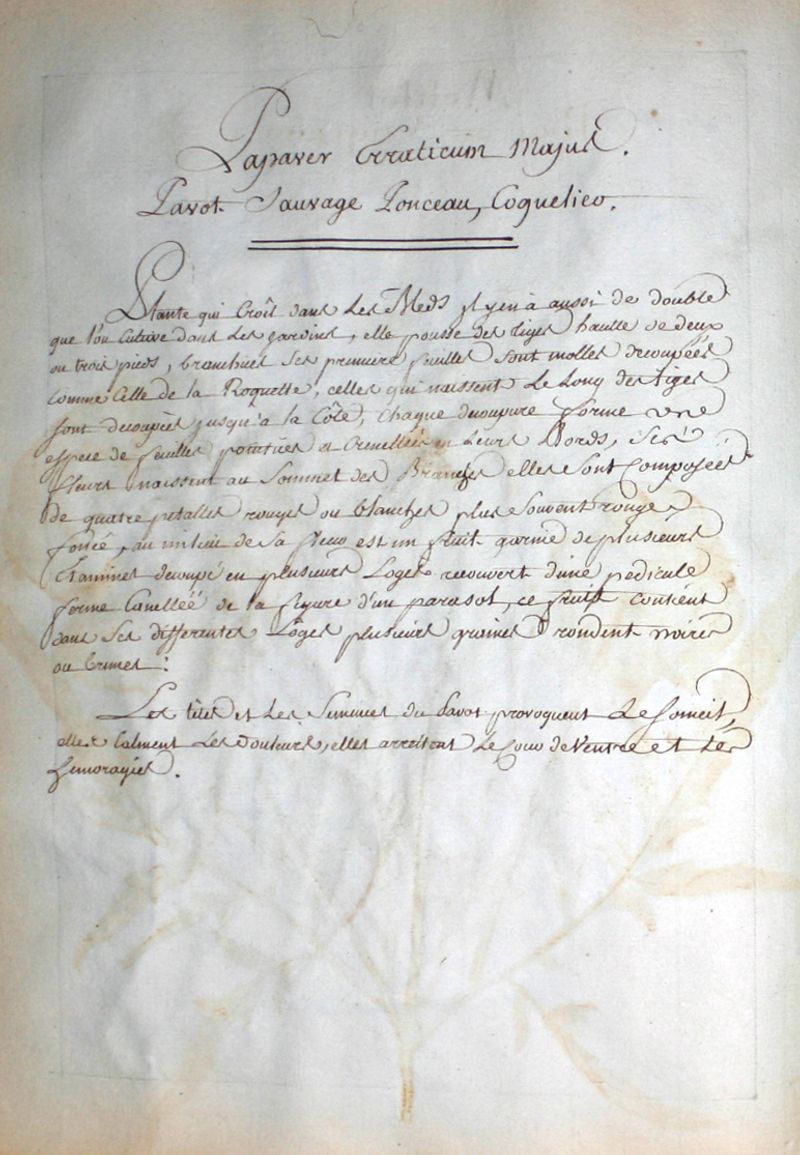 Papaver Erraticum Majus.
Pavot Sauvage Ponceau, Coquelico.
Plante qui Croît dans Les Bleds il y en à aussi de double
que l'on Cultive dans Les jardins, elle pousse des tiges haulte de deux
ou trois pieds, branchues ses premiere feuilles sont molles decoupées
comme Celle de la Roquette, celles qui naissent Le Long des tiges
sont decoupées jusqu'a la Côte, Chaque decoupure forme une
espece de feuilles pointües et Crenellées en Leurs Bords, Ses
fleurs naissent au Sommet des Branches elles Sont Composées
de quatre petalles rouges ou blanches plus Souvent rouge
foncé, au milieu de Sa fleur est un fruit garnie de plusieurs
Etamines decoupé en plusieurs Loges recouvert d'une pedicule
forme Canellée de la figure d'un parasol, ce fruit contient
dans Ses differentes Lôges plusieurs graines rondent noires
ou brunes.
Les têtes et Les Semences du Pavot provoquent Le Someil,
elles Calment Les Douleurs, elles arrettent Le Cour de Ventre et Les
hemoragies.